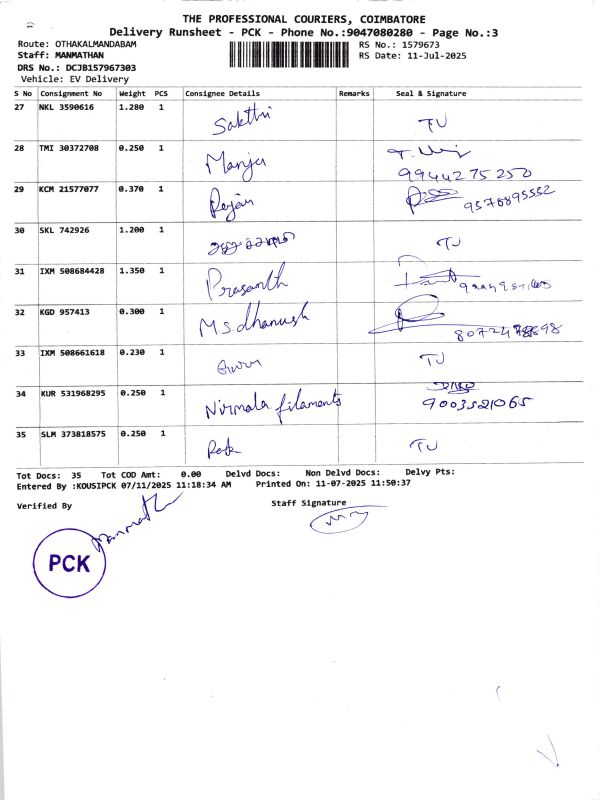 THE PROFESSIONAL COURIERS, COIMBATORE
Delivery Runsheet - PCK - Phone No.:9047080280 - Page No.:3
Route: OTHAKALMANDABAM
RS No.: 1579673
Staff: MANMATHAN
RS Date: 11-Jul-2025
DRS No.: DCJB157967303
Vehicle: EV Delivery
S No Consignment No Weight PCS Consignee Details Remarks Seal & Signature
27 NKL 3590616 1.280 1 Sakthi TU
28 TMI 30372708 0.250 1 Manju
9944275250
29 KCM 21577077 0.370 1 Rajan 9578895552
30 SKL 742926 1.200 1 TU
31 IXM 508684428 1.350 1 Prasanth
32 KGD 957413 0.300 1 M s.dhanush
33 IXM 508661618 0.230 1 TU
34 KUR 531968295 0.250 1 Nirmala filaments 9003521065
35 SLM 373818575 0.250 1 TU
Tot Docs: 35 Tot COD Amt: 0.00 Delvd Docs: Non Delvd Docs: Delvy Pts:
Entered By :KOUSIPCK 07/11/2025 11:18:34 AM Printed On: 11-07-2025 11:50:37
Verified By Staff Signature
Manmath
PCK